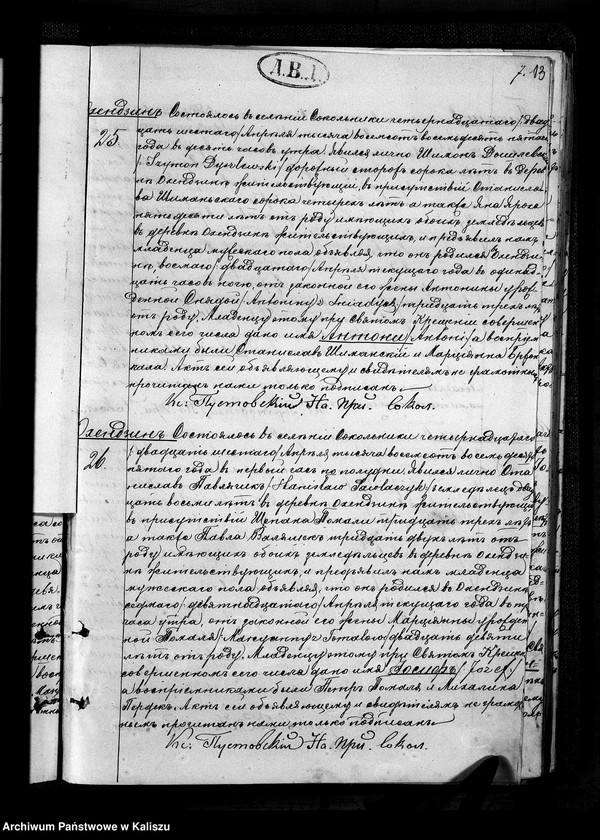 А.В.1.
7. 13
Охендзинъ Состоялось въ селеніи Сокольники четырнадцатаго /двад
25
цать шестаго/ Апрѣля тысяча восемьсотъ восемьдесятъ пятаго
года въ десять часовъ утра. Явился лично Шимонъ
/Szymon Dyszlewski/ дорожный сторожъ сорока лѣтъ въ дерев
нѣ Охендзинѣ жительствующій, въ присутствіи Станисла
ва Шиманьскаго сорока четырехъ лѣтъ а также Яна
пятидесяти лѣтъ отъ роду имѣющихъ обоихъ земледѣльцевъ
въ деревнѣ Охендзинѣ жительствующихъ, и предъявилъ намъ
младенца мужескаго пола объявляя, что онъ родился въ Охендзи
нѣ, восьмаго /двадцатаго/ Апрѣля текущаго года въ одинад
цать часовъ ночи, отъ законной его жены Антонины урож
денной Снядой /Antoniny z Śniadych/ тридцать трехъ лѣтъ
отъ роду. Младенцу этому при Святомъ Крещеніи совершен
номъ сего числа дано имя Антони /Antoni/ а воспріем
никами были Станиславъ Шиманскій и Марціанна
кала. Актъ сей объявляющему и свидѣтелямъ не грамотнымъ
прочитанъ нами только подписанъ.
Кс. Пустовскій На. При. Сокол.
Охендзинъ Состоялось въ селеніи Сокольники четырнадцатаго
26.
/двадцать шестаго/ Апрѣля, тысяча восемьсотъ восемьдесятъ
пятаго года въ первый часъ по полудни. Явился лично Ста
ниславъ Павлячикъ /Stanisław Pawlaczyk/ земледѣлецъ двад
цать восьми лѣтъ въ деревнѣ Охендзинѣ жительствующій
въ присутствіи Щепана Томали тридцать трехъ лѣтъ
а также Павла тридцать двухъ лѣтъ отъ
роду имѣющихъ обоихъ земледѣльцевъ въ деревнѣ Охендзи
нѣ жительствующихъ, и предъявилъ намъ младенца
мужескаго пола объявляя, что онъ родился въ Охендзинѣ
седьмаго /девятнадцатаго/ Апрѣля текущаго года въ три
часа утра, отъ законной его жены Марціанны урожден
ной Томаля /Maryanny z Tomalów/ двадцать девяти
лѣтъ отъ роду. Младенцу этому при Святомъ Крещеніи
совершенномъ сего числа дано имя Іосифъ /Józef/
а воспріемниками были Петръ Томаля и Михалина
Пердекъ. Актъ сей объявляющему и свидѣтелямъ не грамот
нымъ прочитанъ нами только подписанъ
Кс. Пустовскій На. При. Сокол.
Archiwum Państwowe w Kaliszu